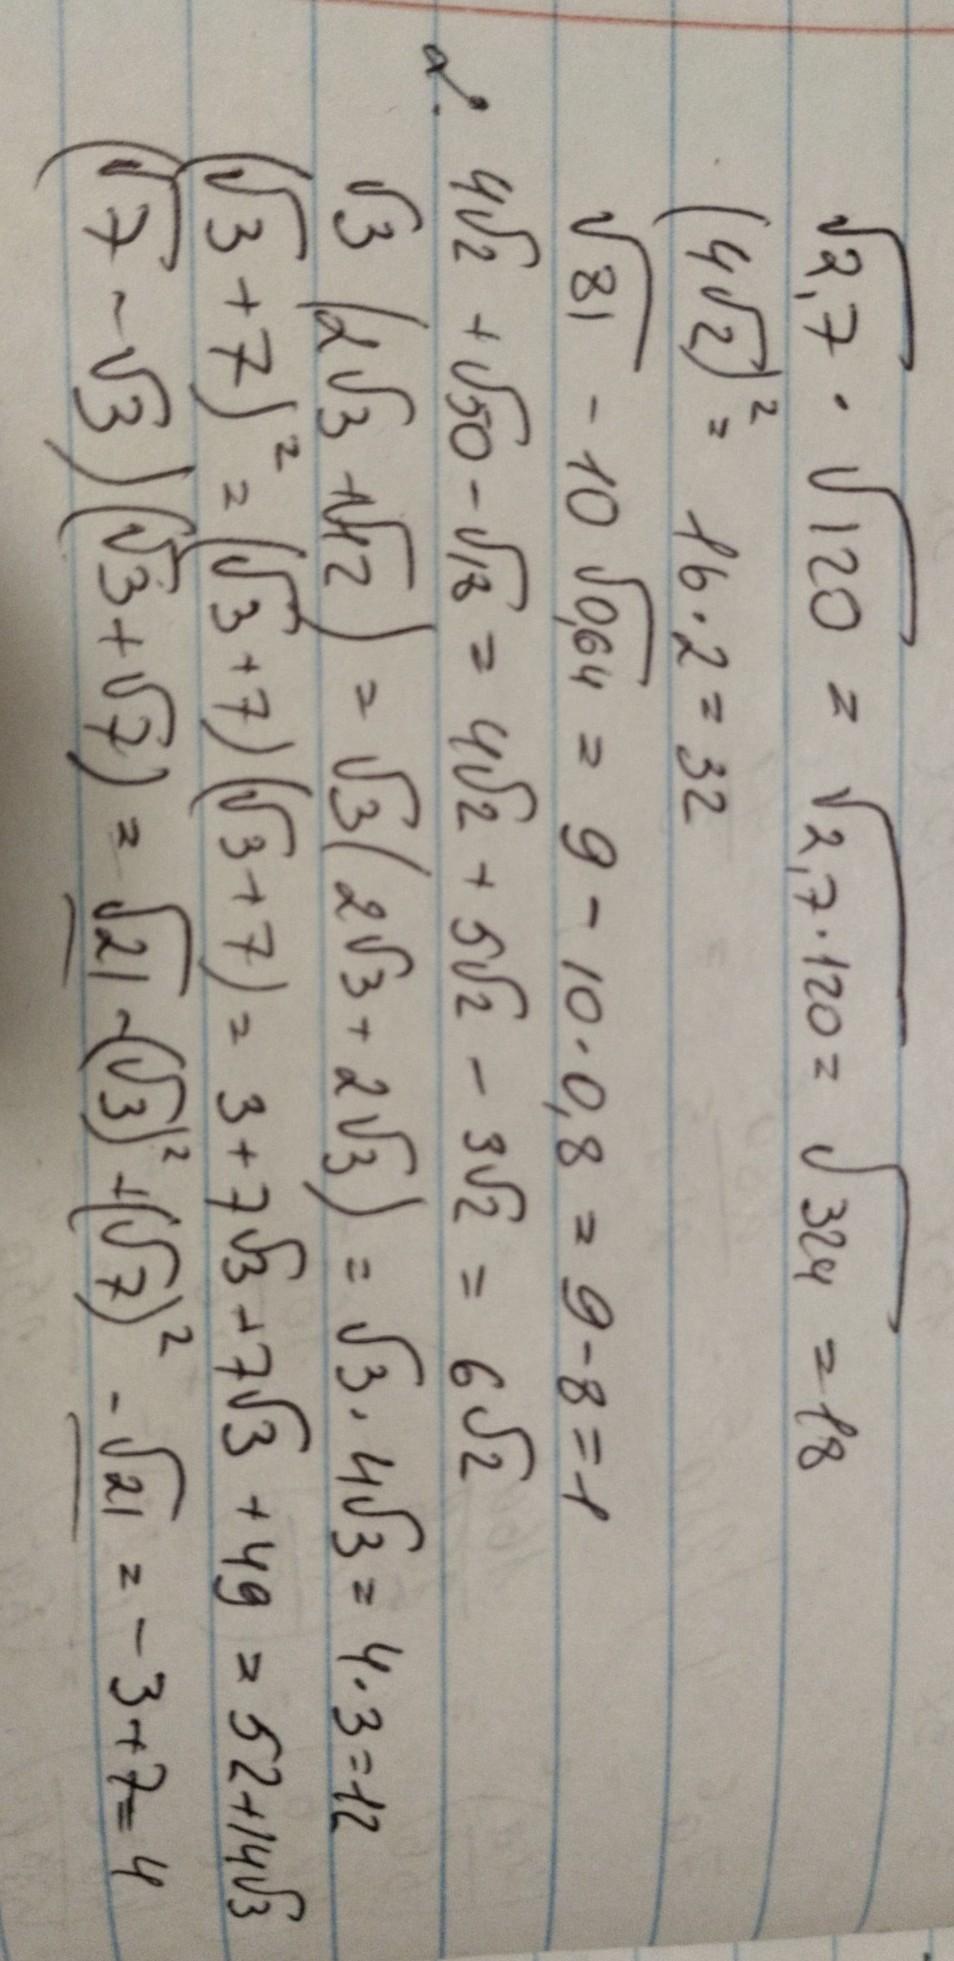 √2,7 · √120 = √2,7·120 = √324 = 18
(4√2)² = 16·2 = 32
√81 - 10√0,64 = 9 - 10·0,8 = 9-8=1
4√2 + √50 - √18 = 4√2 + 5√2 - 3√2 = 6√2
√3 (2√3 + √12) = √3(2√3 + 2√3) = √3 · 4√3 = 4·3=12
(√3+7)² = (√3+7)(√3+7) = 3+7√3+7√3+49 = 52+14√3
(√7-√3)(√3+√7) = √21 - (√3)² + (√7)² - √21 = -3+7=4